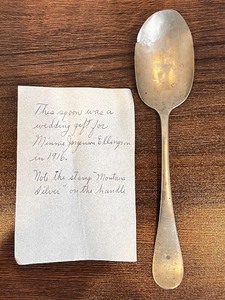 This spoon was a
wedding gift for
Minnie Jorgenson Ellingson
in 1916.
Note the stamp "Montana
Silver" on the handle